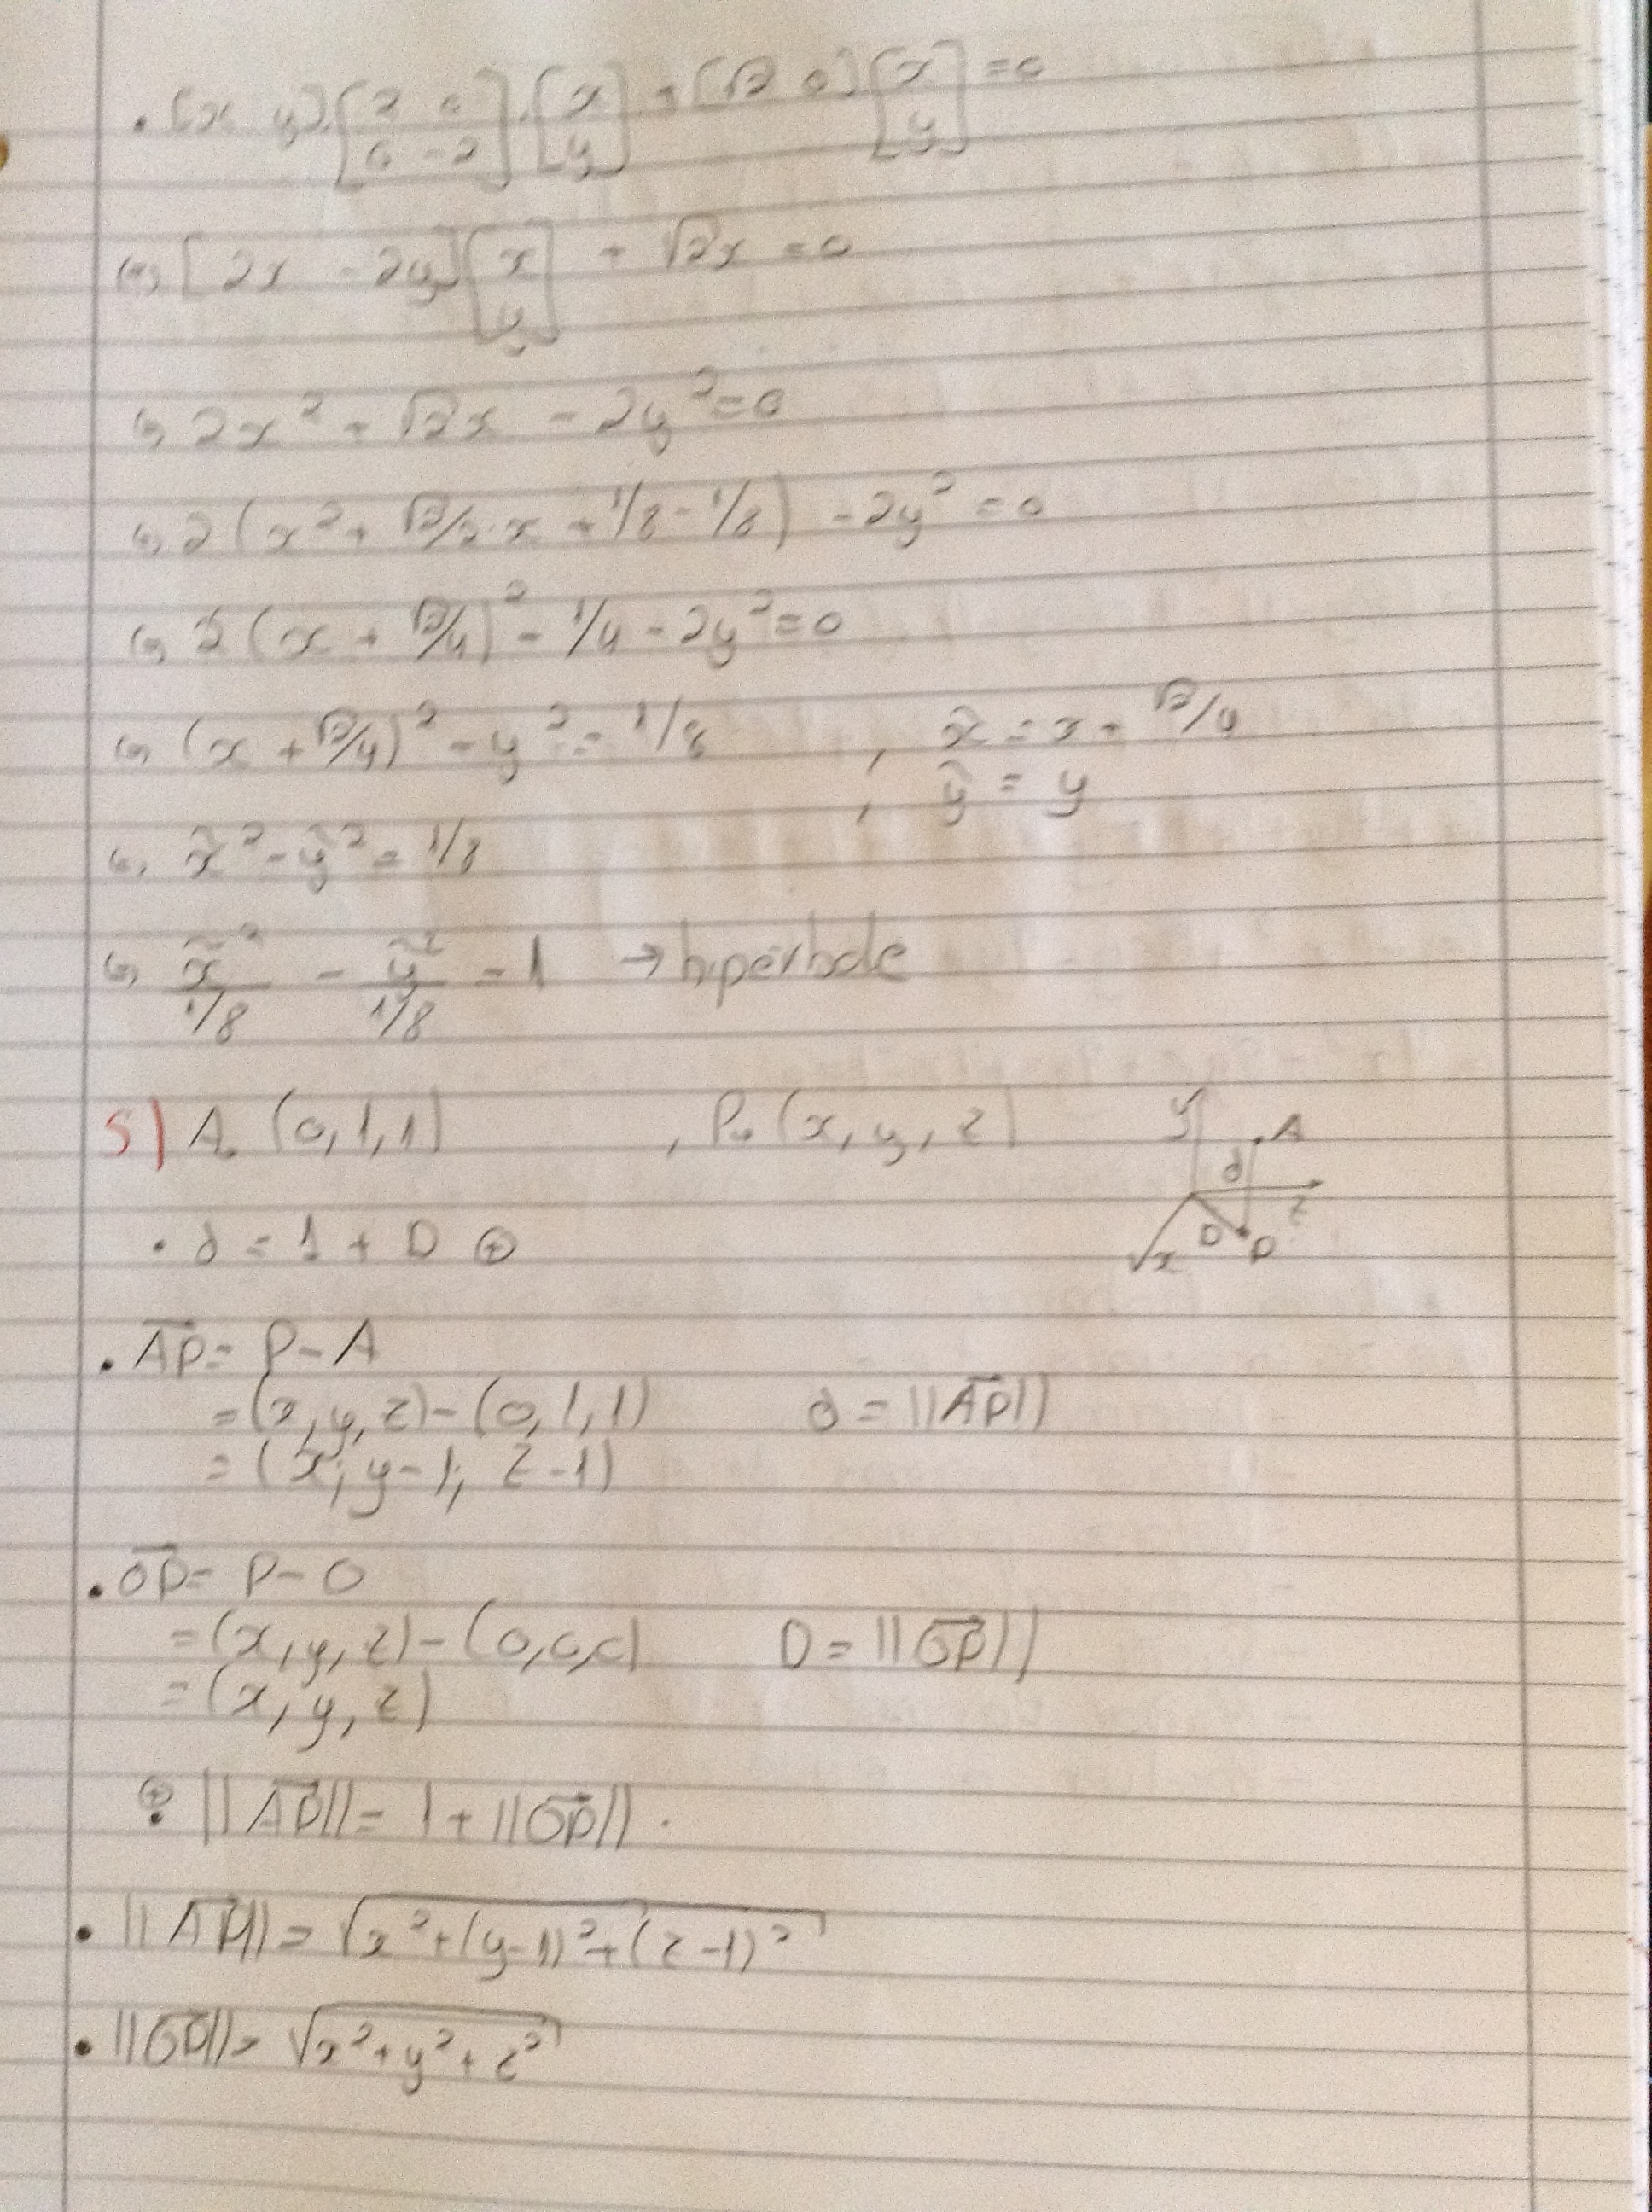 • [x y].[2 0; 0 -2].[x; y] + [√2 0][x; y] = 0
(=) [2x -2y][x; y] + √2x = 0
(=) 2x² + √2x - 2y² = 0
(=) 2(x² + √2/2·x + 1/8 - 1/8) - 2y² = 0
(=) 2(x + √2/4)² - 1/4 - 2y² = 0
(=) (x + √2/4)² - y² = 1/8 , x̃ = x + √2/4
, ỹ = y
(=) x̃² - ỹ² = 1/8
(=) x̃²/1/8 - ỹ²/1/8 = 1 → hiperbole
5) A. (0,1,1) , P. (x,y,z)
y A d z D P x
• d = 1 + D ⊕
• AP⃗ = P - A
= (x,y,z) - (0,1,1) d = ||AP⃗||
= (x; y-1; z-1)
• OP⃗ = P - O
= (x,y,z) - (0,0,0) D = ||OP⃗||
= (x,y,z)
⊕: ||AP⃗|| = 1 + ||OP⃗||.
• ||AP⃗|| = √(x² + (y-1)² + (z-1)²)
• ||OP⃗|| = √(x² + y² + z²)